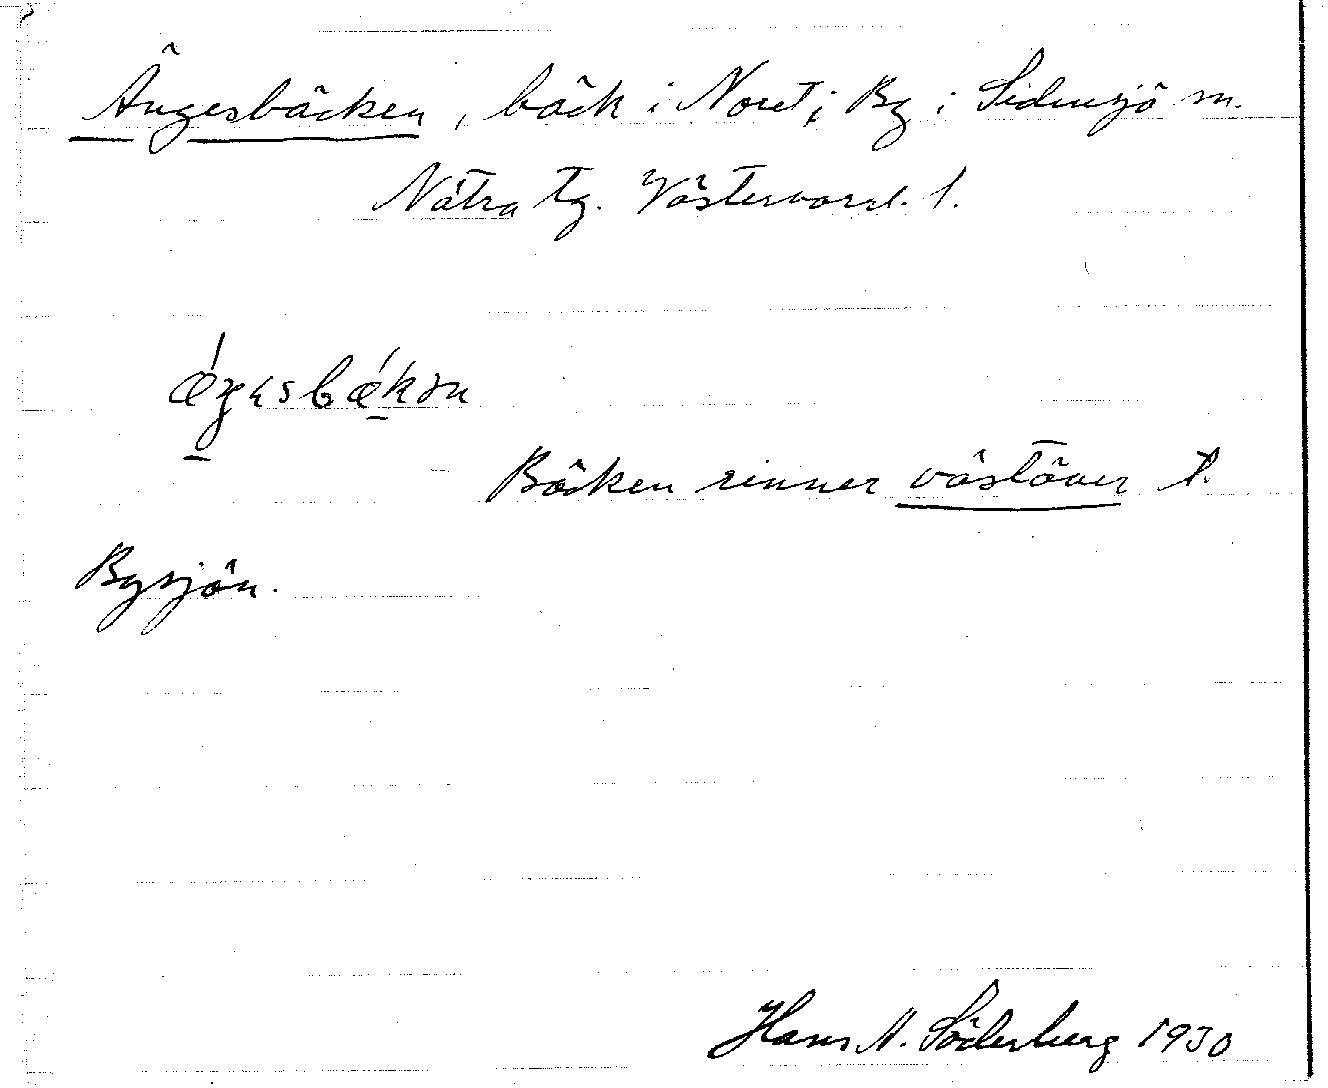 Ängesbäcken, bäck i Noret, By i Sidensjö sn.
Nätra tg. Västernorrl. l.
Bäcken rinner västöver t.
Bysjön.
Hans N. Söderberg 1930